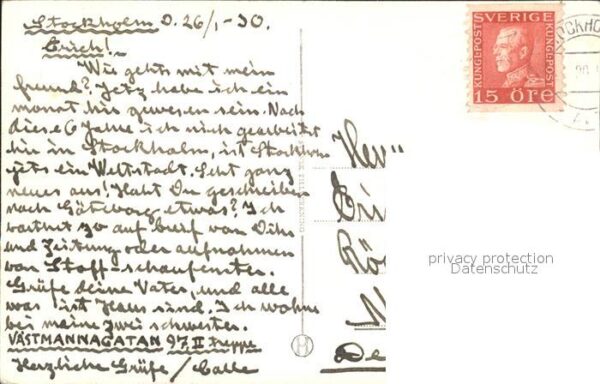 Stockholm d. 26/1-30.
Erich!
Wie gehts mit mein
freund? Jetz habe ich ein
monat hir gewesen sein. Nach
dies 6 Jahre ich nich gearbeitet
hir in Stockholm, ist Stockholm
jets ein Weltstadt. Seht ganz
neues aus! Habt Du geschrieben
nach Göteborg etwas? Ich
warthet zo auf breif van Dihr
und Zeitung oder aufnahmen
van Stoff-schaufenster.
Grüfe deine Vater, und alle
was ist Haus sind. Ich wohne
bei meine zwei schwester.
VÄSTMANNAGATAN 97 II treppe
Herzliche Grüfe / Calle
SVERIGE
KUNGL.POST
KUNGL.POST
15 ÖRE
Herrn
privacy protection
Datenschutz